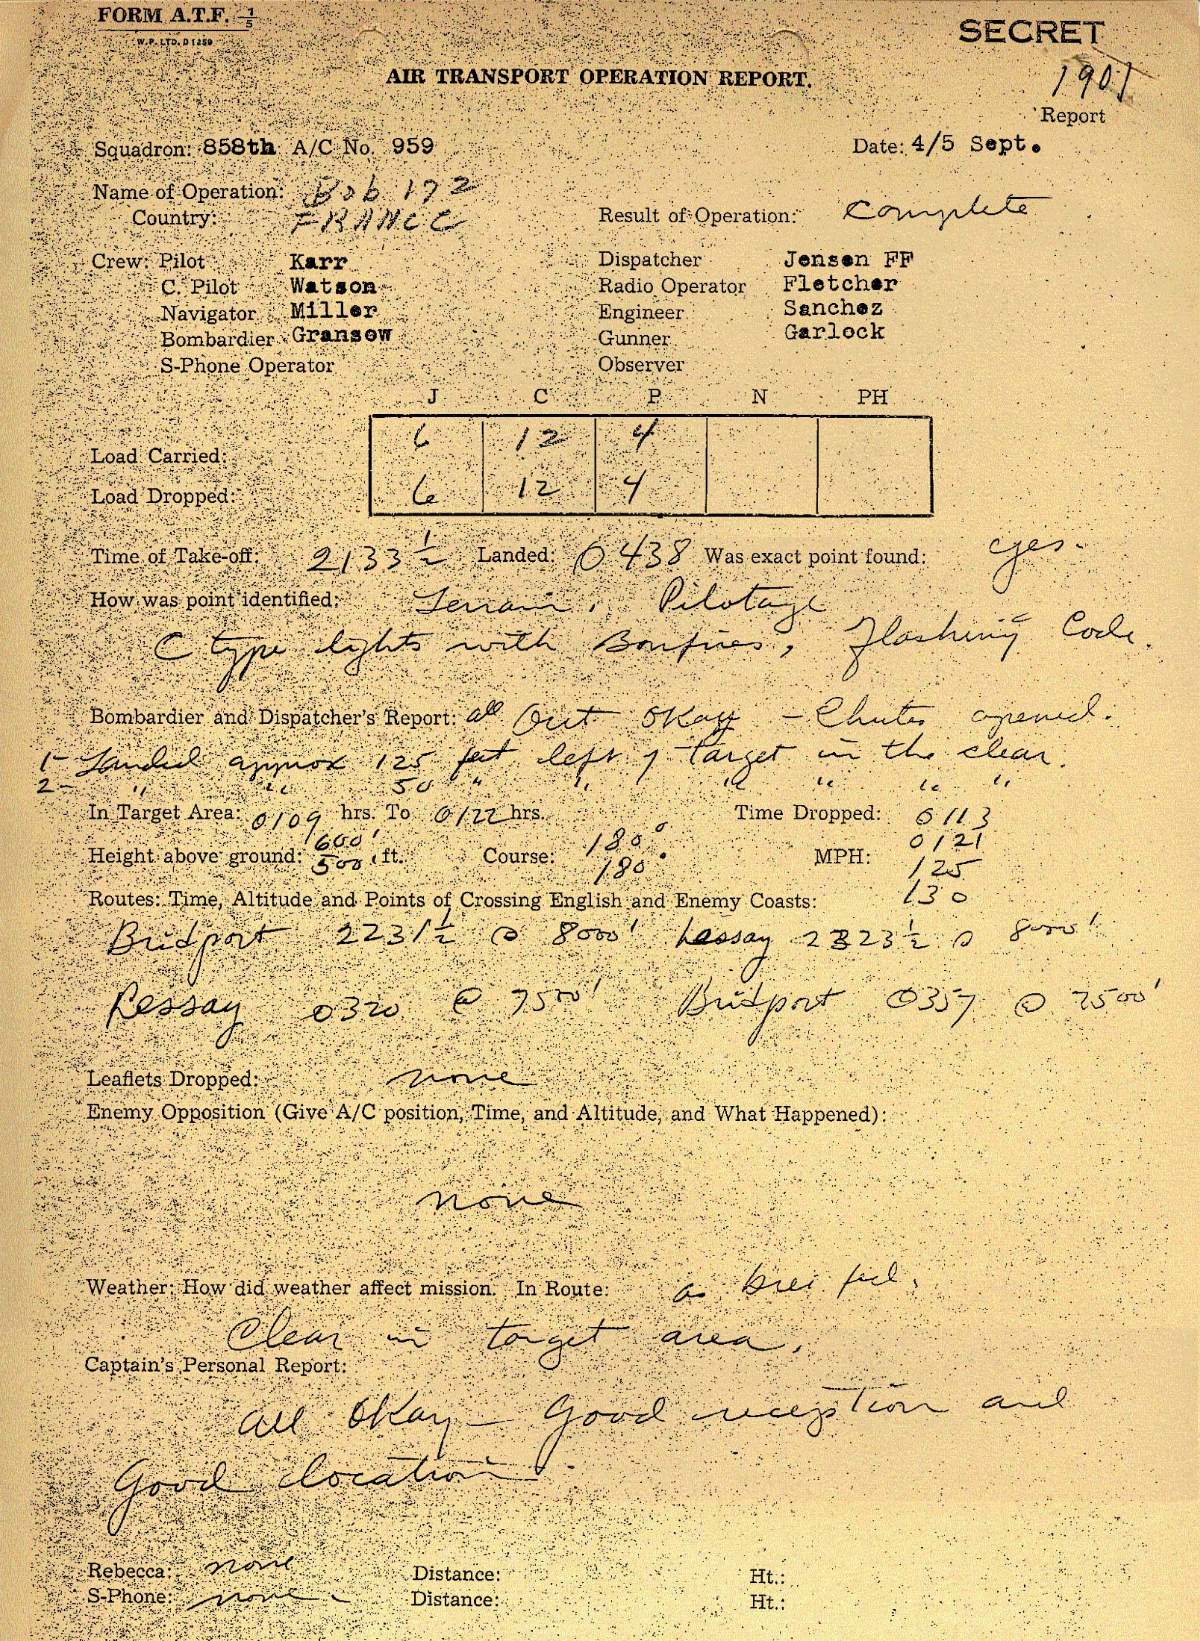 FORM A.T.F. 1/5
W.P. LTD. D1259
SECRET
1901
AIR TRANSPORT OPERATION REPORT.
Report
Squadron: 858th A/C No. 959 Date: 4/5 Sept.
Name of Operation: Bob 172
Country: FRANCE Result of Operation: Complete
Crew: Pilot Karr Dispatcher Jensen FF
C. Pilot Watson Radio Operator Fletcher
Navigator Miller Engineer Sanchez
Bombardier Gransow Gunner Garlock
S-Phone Operator Observer
J C P N PH
Load Carried: 6 12 4
Load Dropped: 6 12 4
Time of Take-off: 2133 1/2 Landed: 0438 Was exact point found: yes.
How was point identified: Terrain, Pilotage
C type lights with Bonfires, flashing Code.
Bombardier and Dispatcher's Report: all Out Okay - Chutes opened.
1- Landed approx 125 feet left of target in the clear.
2- " " 50 " " " " " "
In Target Area: 0109 hrs. To 0122 hrs. Time Dropped: 0113
0121
Height above ground: 600' ft. Course: 180° MPH: 125
500' 180° 130
Routes: Time, Altitude and Points of Crossing English and Enemy Coasts:
Bridport 2231 1/2 @ 8000' Lessay 2323 1/2 @ 8000'
Lessay 0320 @ 7500' Bridport 0357 @ 7500'
Leaflets Dropped: none
Enemy Opposition (Give A/C position, Time, and Altitude, and What Happened):
none
Weather: How did weather affect mission. In Route: as briefed.
Clear in target area.
Captain's Personal Report:
all Okay - Good reception and
Good location.
Rebecca: none Distance: Ht.:
S-Phone: none - Distance: Ht.: